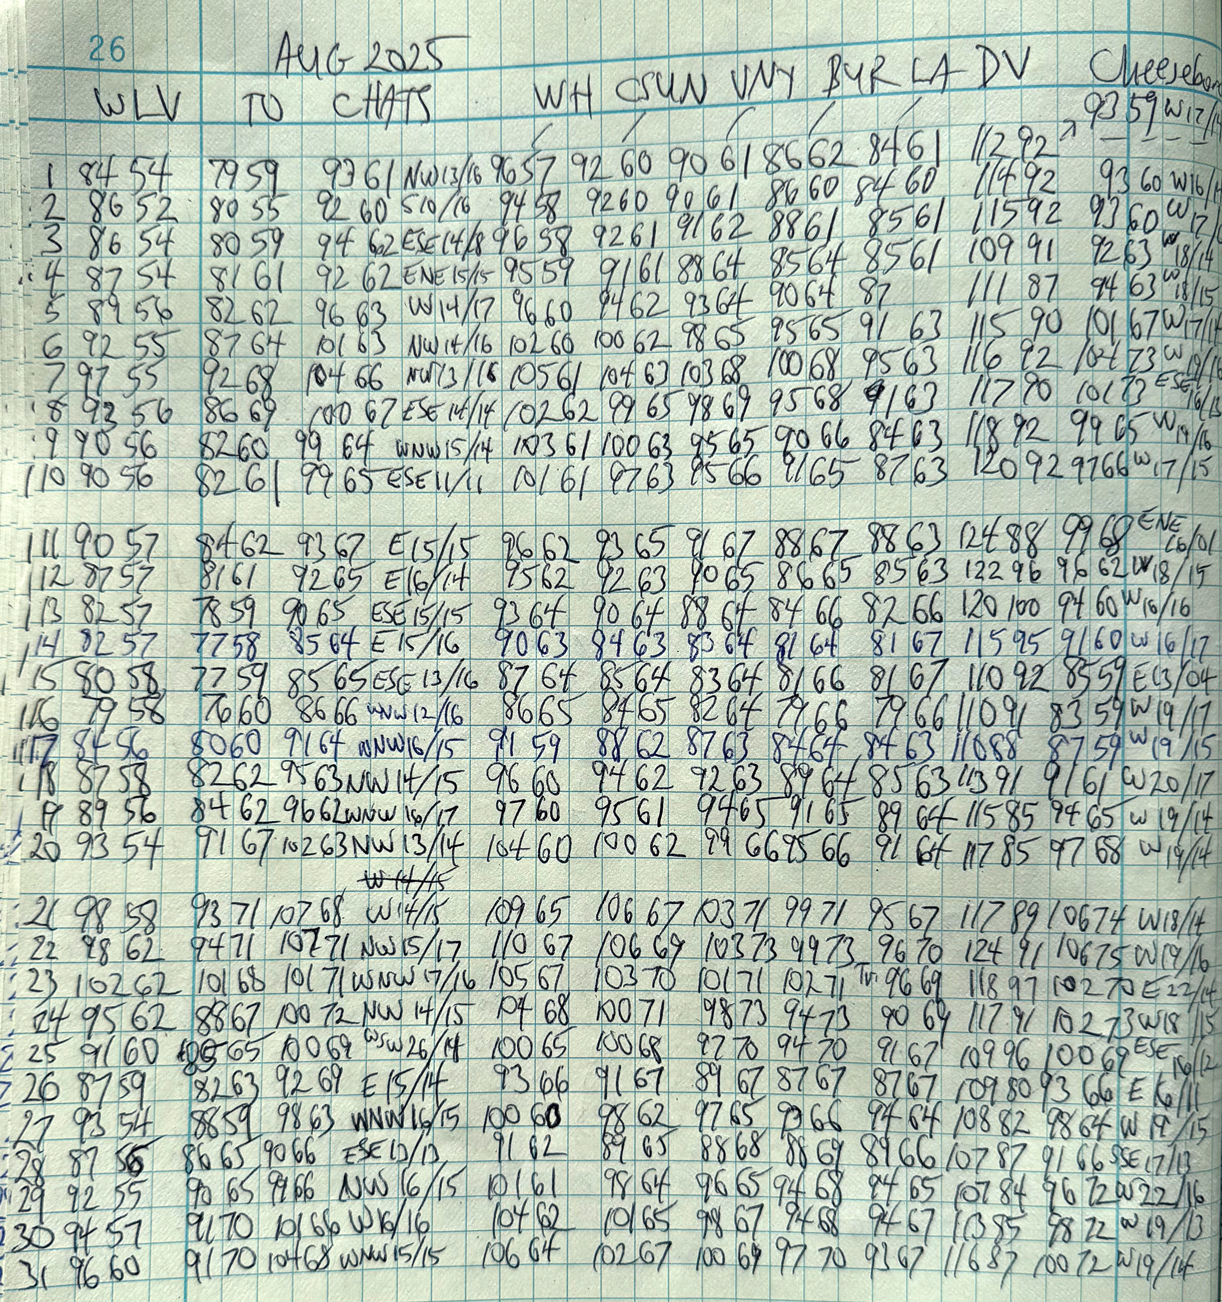 26 AUG 2025
WLV TO CHATS WH CSUN VNY BUR LA DV Cheesebor
93 59 W17/
1 84 54 79 59 93 61 NW13/16 96 57 92 60 90 61 86 62 84 61 112 92
2 86 52 80 55 92 60 S10/16 94 58 92 60 90 61 86 60 84 60 114 92 93 60 W16/
3 86 54 80 59 94 62 ESE14/8 96 58 92 61 91 62 88 61 85 61 115 92 93 60 W17/
4 87 54 81 61 92 62 ENE15/15 95 59 91 61 88 64 85 64 85 61 109 91 92 63 W18/14
5 89 56 82 62 96 63 W14/17 96 60 94 62 93 64 90 64 87 111 87 94 63 W18/15
6 92 55 87 64 101 63 NW14/16 102 60 100 62 98 65 95 65 91 63 115 90 101 67 W17/
7 97 55 92 68 104 66 NW13/16 105 61 104 63 103 68 100 68 95 63 116 92 73 W19/16
8 93 56 86 69 100 67 ESE14/14 102 62 99 65 98 69 95 68 91 63 117 90 101 73 ESE16/13
9 90 56 82 60 99 64 WNW15/14 103 61 100 63 95 65 90 66 84 63 118 92 99 65 W19/16
10 90 56 82 61 99 65 ESE11/11 101 61 97 63 95 66 91 65 87 63 120 92 97 66 W17/15
11 90 57 84 62 93 67 E15/15 96 62 93 65 91 67 88 67 88 63 124 88 99 68 ENE
12 87 57 81 61 92 65 E16/14 95 62 92 63 90 65 86 65 85 63 122 96 96 62 W18/15
13 82 57 78 59 90 65 ESE15/15 93 64 90 64 88 64 84 66 82 66 120 100 94 60 W16/16
14 82 57 77 58 85 64 E15/16 90 63 84 63 83 64 81 64 81 67 115 95 91 60 W16/17
15 80 58 77 59 85 65 ESE13/16 87 64 85 64 83 64 81 66 81 67 110 92 85 59 E13/04
16 79 58 76 60 86 66 WNW12/16 86 65 84 65 82 64 79 66 79 66 110 91 83 59 W19/17
17 84 56 80 60 91 64 WNW16/15 91 59 88 62 87 63 84 64 84 63 110 88 87 59 W19/15
18 87 58 82 62 95 63 NW14/15 96 60 94 62 92 63 89 64 85 63 113 91 91 61 W20/17
19 89 56 84 62 96 62 WNW16/17 97 60 95 61 94 65 91 65 89 64 115 85 94 65 W19/14
20 93 54 91 67 102 63 NW13/14 104 60 100 62 99 66 95 66 91 64 117 85 97 68 W19/14
W14/15
21 98 58 93 71 107 68 W14/15 109 65 106 67 103 71 99 71 95 67 117 89 106 74 W18/14
22 98 62 94 71 107 71 NW15/17 110 67 106 69 103 73 99 73 96 70 124 91 106 75 W19/16
23 102 62 101 68 101 71 WNW17/16 105 67 103 70 101 71 102 71 96 69 118 97 102 70 E22/14
24 95 62 88 67 100 72 NW14/15 104 68 100 71 98 73 94 73 90 69 117 91 102 73 W18/15
25 91 60 85 65 100 69 WSW26/14 100 65 100 68 97 70 94 70 91 67 109 96 100 69 ESE16/12
26 87 59 82 63 92 69 E15/14 93 66 91 67 89 67 87 67 87 67 109 80 93 66 E16/11
27 93 54 88 59 98 63 WNW16/15 100 60 98 62 97 65 93 66 94 64 108 82 98 64 W19/15
28 87 56 86 65 90 66 ESE13/13 91 62 89 65 88 68 88 69 89 66 107 87 91 66 SSE17/13
29 92 55 90 65 99 66 NW16/15 101 61 98 64 96 65 94 68 94 65 107 84 96 72 W22/16
30 94 57 91 70 101 66 W16/16 104 62 101 65 98 67 94 68 94 67 113 85 98 72 W19/13
31 96 60 91 70 104 68 WNW15/15 106 64 102 67 100 69 97 70 93 67 116 87 100 72 W19/14